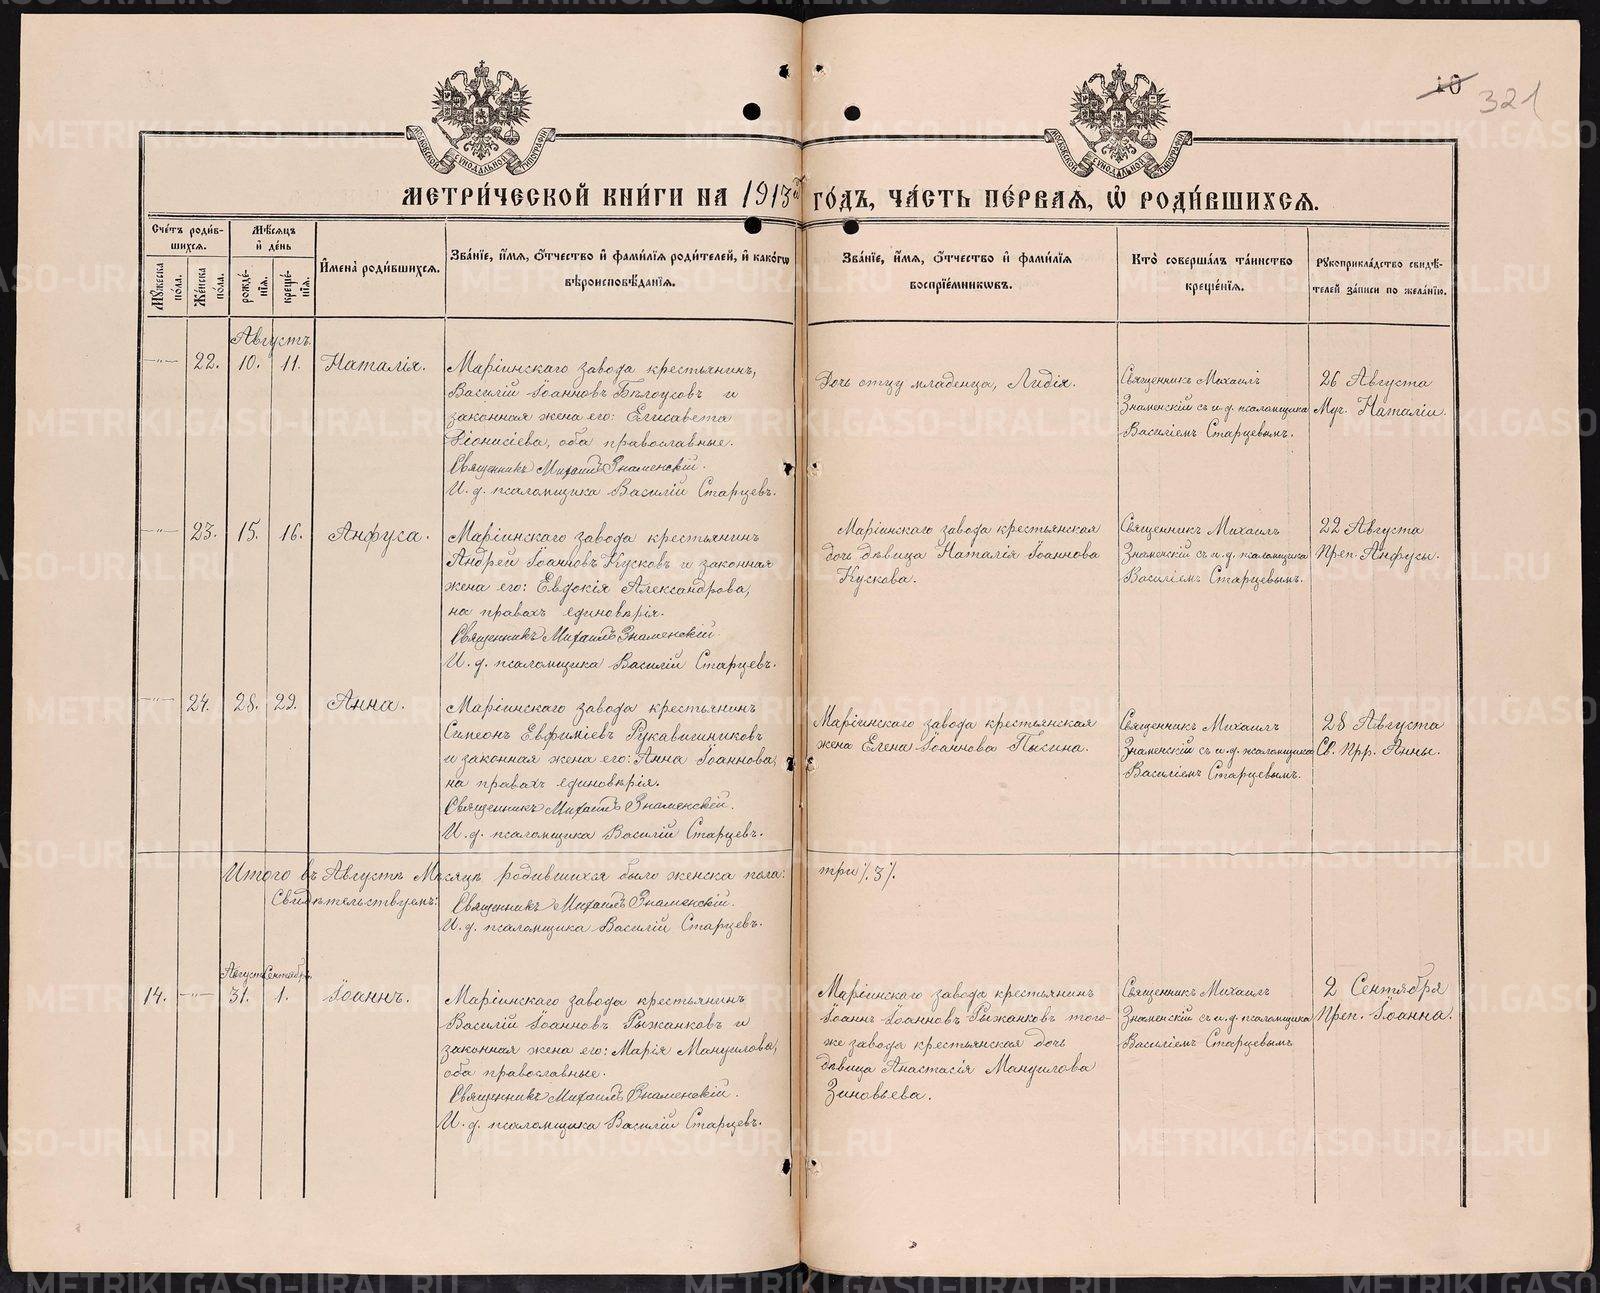 10 321
МОСКОВСКОЙ СѴНОДАЛЬНОЙ ТИПОГРАФІИ
МОСКОВСКОЙ СѴНОДАЛЬНОЙ ТИПОГРАФІИ
МЕТРИ́ЧЕСКОЙ КНИ́ГИ НА 1913й ГО́ДЪ, ЧА́СТЬ ПЕ́РВАѦ, Ѡ РОДИ́ВШИХСѦ.
Сче́тъ роди́в-
шихся.
Мѣ́сяцъ
и̂ де́нь
Мꙋ́жеска
по́ла.
Же́нска
по́ла.
рожде́-
нїя.
креще́-
нїя.
И҆мена̀ роди́вшихся.
Зва́нїе, и҆́мя, ѻ҆́тчество и҆ фами́лїя роди́телей, и҆ како́гѡ
вѣроисповѣ́данїя.
Зва́нїе, и҆́мя, ѻ҆́тчество и҆ фами́лїя
воспрїе́мникѡвъ.
Кто̀ соверша́лъ та́инство
креще́нїя.
Рꙋкоприкла́дство свидѣ́-
телей за́писи по жела́нїю.
Августъ.
—"— 22. 10. 11. Наталія.
Маріинскаго завода крестьянинъ,
Василій Іоанновъ Бѣлоусовъ и
законная жена его: Елисавета
Діонисіева, оба православные.
Священникъ Михаилъ Знаменскій.
И. д. псаломщика Василій Старцевъ.
Дочь отцу младенца, Лидія.
Священникъ Михаилъ
Знаменскій съ и. д. псаломщика
Василіемъ Старцевымъ.
26 Августа
Муч. Наталіи.
—"— 23. 15. 16. Анфуса.
Маріинскаго завода крестьянинъ
Андрей Іоанновъ Кусковъ и законная
жена его: Евдокія Александрова,
на правахъ единовѣрія.
Священникъ Михаилъ Знаменскій.
И. д. псаломщика Василій Старцевъ.
Маріинскаго завода крестьянская
дочь дѣвица Наталія Іоаннова
Кускова.
Священникъ Михаилъ
Знаменскій съ и. д. псаломщика
Василіемъ Старцевымъ.
22 Августа
Преп. Анфусы.
—"— 24. 28. 29. Анна.
Маріинскаго завода крестьянинъ
Симеонъ Евфиміевъ Рукавишниковъ
и законная жена его: Анна Іоаннова,
на правахъ единовѣрія.
Священникъ Михаилъ Знаменскій.
И. д. псаломщика Василій Старцевъ.
Маріинскаго завода крестьянская
жена Елена Іоаннова Пысина.
Священникъ Михаилъ
Знаменскій съ и. д. псаломщика
Василіемъ Старцевымъ.
28 Августа
Св. Прр. Анны.
Итого въ Августѣ Мѣсяцѣ родившихся было женска пола: три ٪ 3 ٪
Свидѣтельствуемъ: Священникъ Михаилъ Знаменскій.
И. д. псаломщика Василій Старцевъ.
Августъ Сентябрь
14. —"— 31. 1. Іоаннъ.
Маріинскаго завода крестьянинъ
Василій Іоанновъ Рыжанковъ и
законная жена его: Марія Мануилова,
оба православные.
Священникъ Михаилъ Знаменскій.
И. д. псаломщика Василій Старцевъ.
Маріинскаго завода крестьянинъ
Іоаннъ Іоанновъ Рыжанковъ того-
же завода крестьянская дочь
дѣвица Анастасія Мануилова
Зиновьева.
Священникъ Михаилъ
Знаменскій съ и. д. псаломщика
Василіемъ Старцевымъ
2 Сентября
Преп. Іоанна.
METRIKI.GASO-URAL.RU